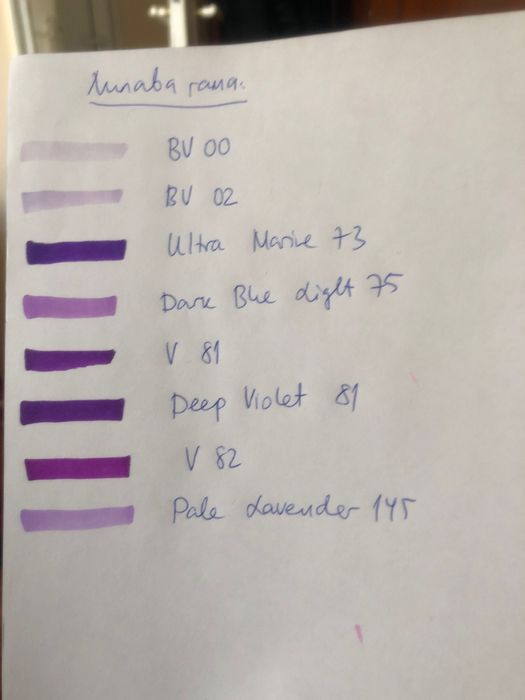 Лилава гама.
BV 00
BV 02
Ultra Marine 73
Dark Blue Light 75
V 81
Deep Violet 81
V 82
Pale Lavender 145